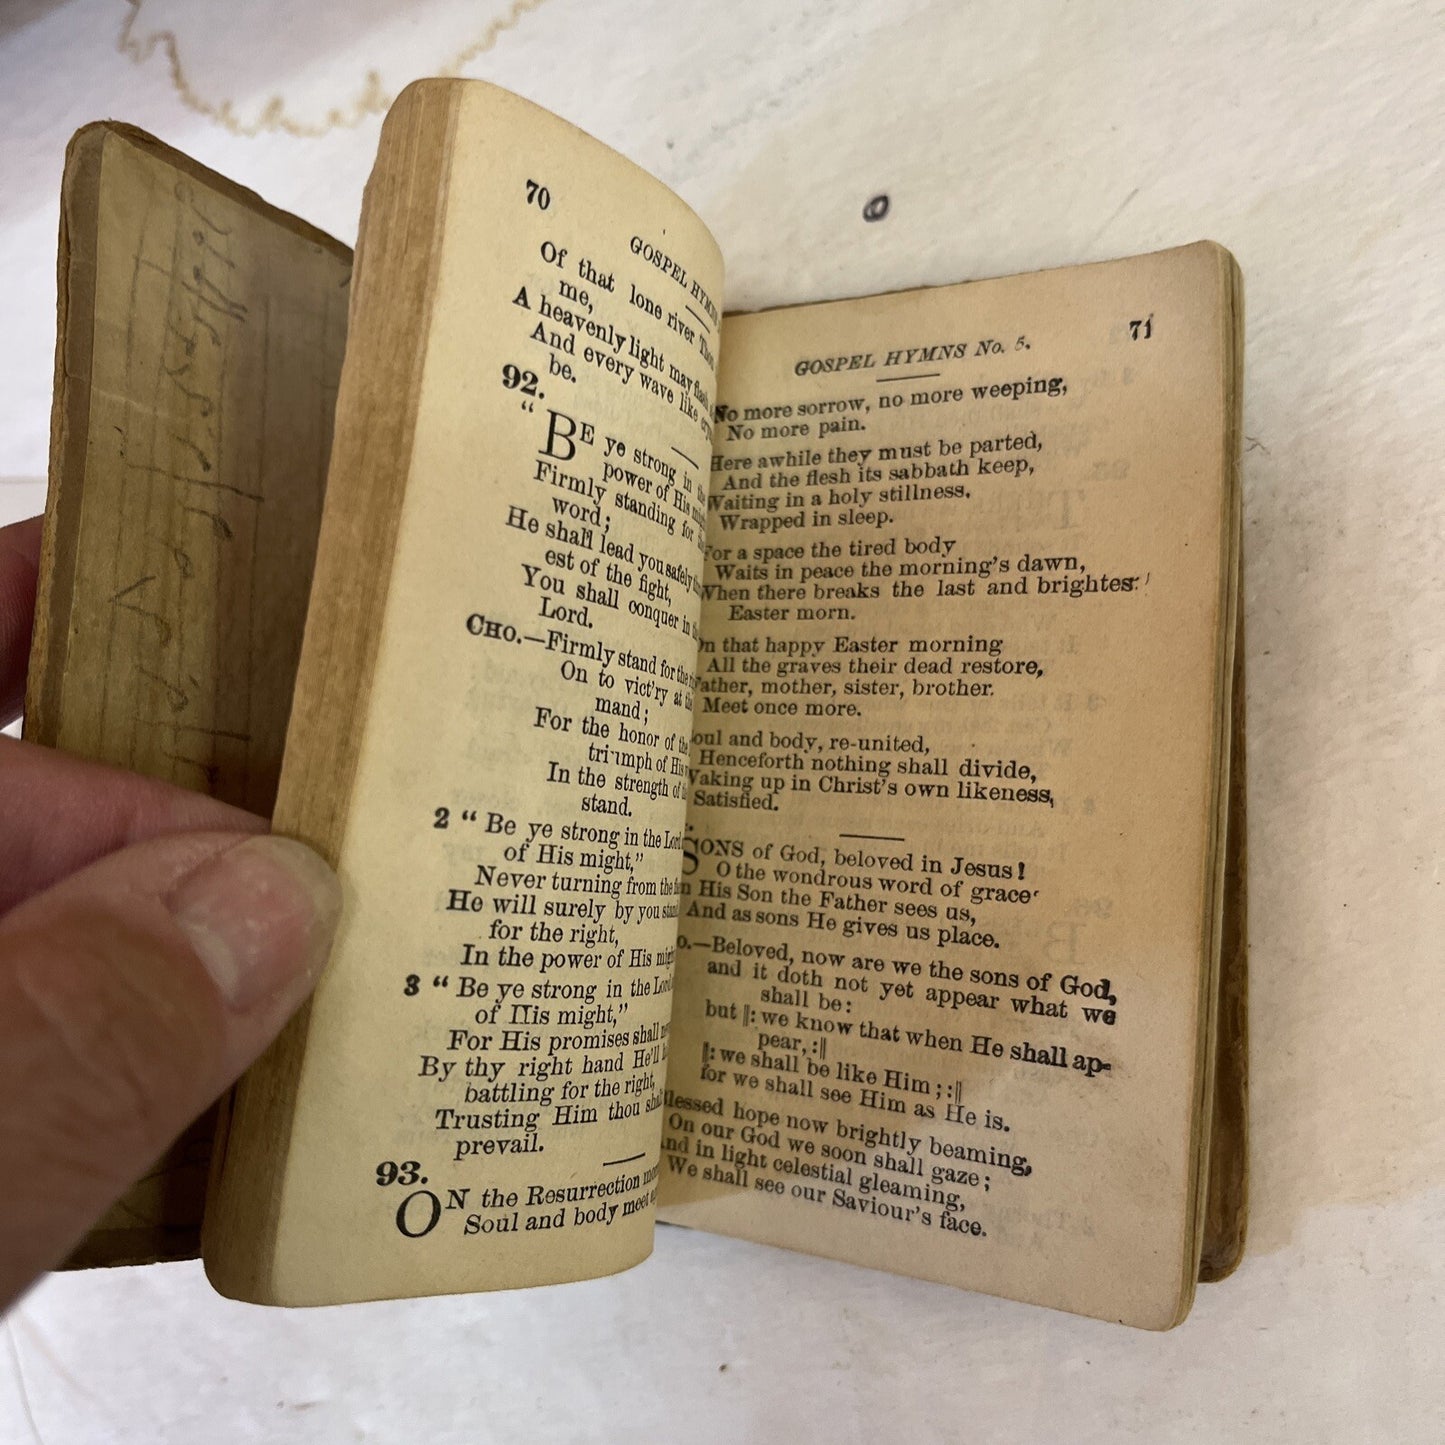 70
GOSPEL HYMNS
Of that lone river
me,
A heavenly light may flash
And every wave like
be.
92.
"BE ye strong in the
power of His might
Firmly standing for the
word;
He shall lead you safely
est of the fight,
You shall conquer in the
Lord.
CHO.—Firmly stand for the
On to vict'ry at the
mand;
For the honor of the
triumph of His
In the strength of
stand.
2 "Be ye strong in the Lord
of His might,"
Never turning from the
He will surely by you stand
for the right,
In the power of His might
3 "Be ye strong in the Lord
of His might,"
For His promises shall
By thy right hand He'll
battling for the right,
Trusting Him thou shalt
prevail.
93.
ON the Resurrection
Soul and body meet
71
GOSPEL HYMNS No. 5.
No more sorrow, no more weeping,
No more pain.
Here awhile they must be parted,
And the flesh its sabbath keep,
Waiting in a holy stillness.
Wrapped in sleep.
For a space the tired body
Waits in peace the morning's dawn,
When there breaks the last and brightest
Easter morn.
On that happy Easter morning
All the graves their dead restore,
Father, mother, sister, brother.
Meet once more.
Soul and body, re-united,
Henceforth nothing shall divide,
Waking up in Christ's own likeness,
Satisfied.
SONS of God, beloved in Jesus!
O the wondrous word of grace
In His Son the Father sees us,
And as sons He gives us place.
o.—Beloved, now are we the sons of God,
and it doth not yet appear what we
shall be:
but ‖: we know that when He shall ap-
pear, :‖
‖: we shall be like Him; :‖
for we shall see Him as He is.
Blessed hope now brightly beaming,
On our God we soon shall gaze;
And in light celestial gleaming,
We shall see our Saviour's face.